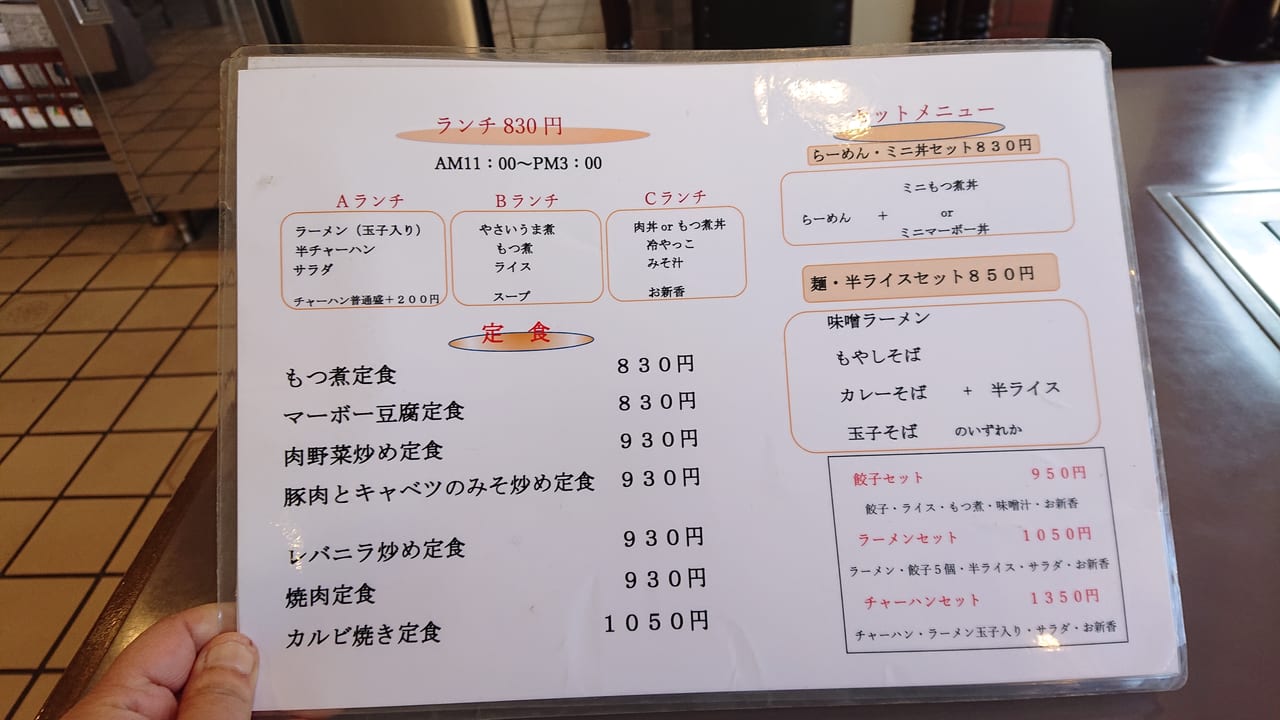 ランチ 830 円
AM11：00～PM3：00
Aランチ
ラーメン（玉子入り）
半チャーハン
サラダ
チャーハン普通盛＋２００円
Bランチ
やさいうま煮
もつ煮
ライス
スープ
Cランチ
肉丼 or もつ煮丼
冷やっこ
みそ汁
お新香
定　食
もつ煮定食　８３０円
マーボー豆腐定食　８３０円
肉野菜炒め定食　９３０円
豚肉とキャベツのみそ炒め定食　９３０円
レバニラ炒め定食　９３０円
焼肉定食　９３０円
カルビ焼き定食　１０５０円
セットメニュー
らーめん・ミニ丼セット８３０円
ミニもつ煮丼
らーめん　＋　or
ミニマーボー丼
麺・半ライスセット８５０円
味噌ラーメン
もやしそば
カレーそば　＋　半ライス
玉子そば　のいずれか
餃子セット　９５０円
餃子・ライス・もつ煮・味噌汁・お新香
ラーメンセット　１０５０円
ラーメン・餃子５個・半ライス・サラダ・お新香
チャーハンセット　１３５０円
チャーハン・ラーメン玉子入り・サラダ・お新香